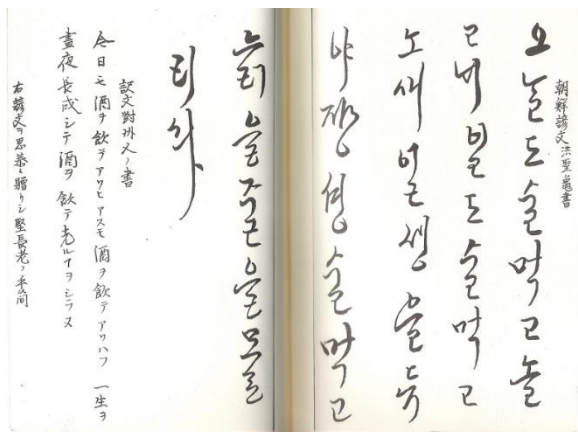 朝鮮諺文洪聖龜書
오늘도술먹고놀
고 일도술먹고
노새일생을듀
야쟝셩술먹고
줄을모를
리라
訳文對州人ノ書
今日モ酒ヲ飲テアソヒアスモ酒ヲ飲テアソハフ 一生ヲ
晝夜長成シテ酒ヲ飲テ老ルヿヲシラヌ
右諺文ヲ 恭ニ贈リシ堅長老ノ